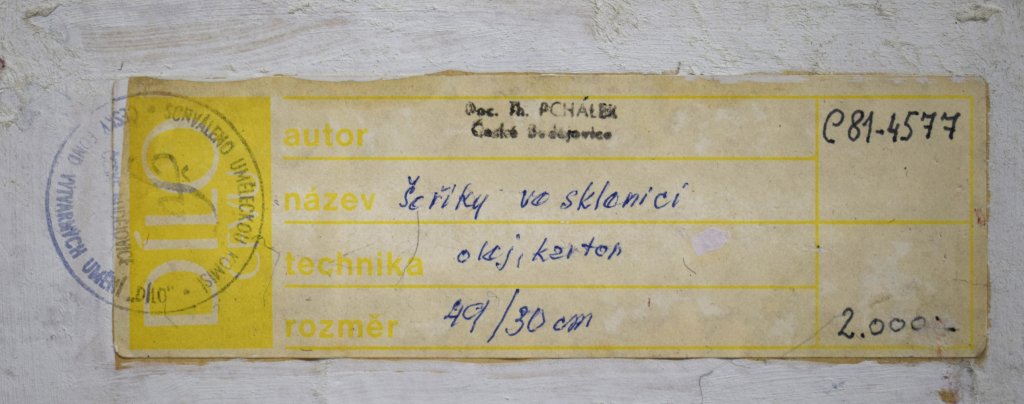 DÍLO
ČFVU
SCHVÁLENO UMĚLECKOU KOMISÍ
ČESKÝ FOND VÝTVARNÝCH UMĚNÍ "DÍLO"
autor
Doc. Th. PCHÁLEK
České Budějovice
C81-4577
název
Šeříky ve sklenici
technika
olej, karton
rozměr
49/30 cm
2.000.-